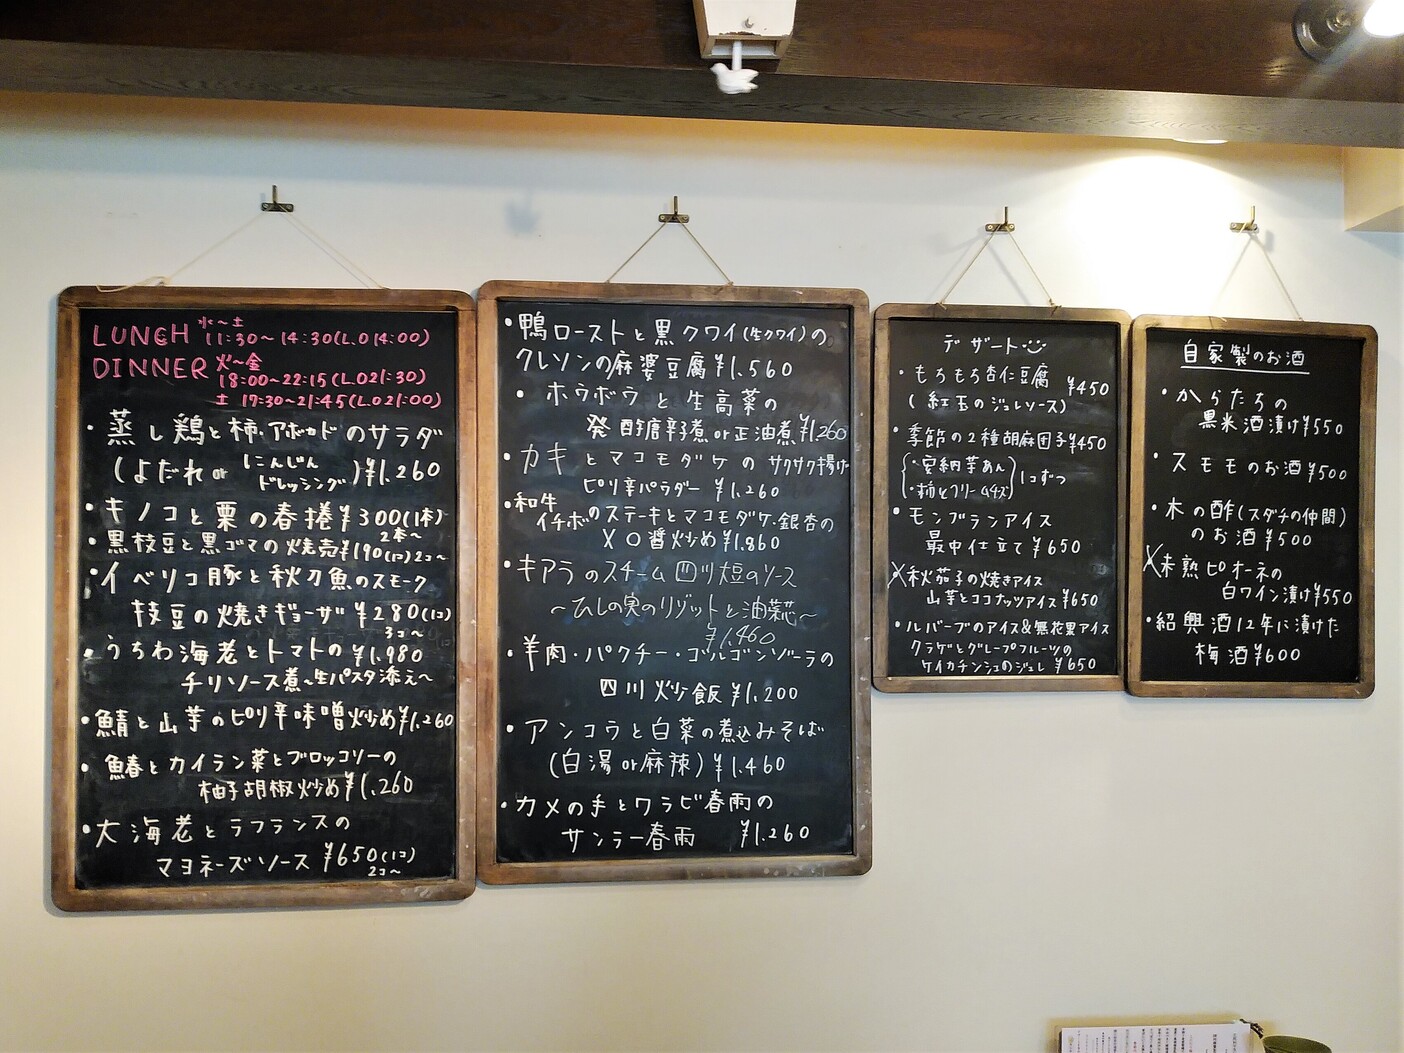 LUNCH 水～土
11:30～14:30(L.O 14:00)
DINNER 火～金
18:00～22:15(L.O21:30)
土 17:30～21:45(L.O21:00)
・蒸し鶏と柿・アボカドのサラダ
(よだれ or にんじんドレッシング)¥1.260
・キノコと栗の春捲¥300(1本)
2本～
・黒枝豆と黒ゴマの焼売¥190(1コ)2コ～
・イベリコ豚と秋刀魚のスモーク
枝豆の焼きギョーザ ¥280(1コ)
3コ～
・うちわ海老とトマトの¥1,980
チリソース煮～生パスタ添え～
・鯖と山芋のピリ辛味噌炒め¥1.260
・鰆とカイラン菜とブロッコリーの
柚子胡椒炒め¥1.260
・大海老とラフランスの
マヨネーズソース ¥650(1コ)
2コ～
・鴨ローストと黒クワイ(生クワイ)の
クレソンの麻婆豆腐¥1.560
・ホウボウと生高菜の
発酵唐辛子煮or正油煮¥1.260
・カキとマコモダケのサクサク揚げ
ピリ辛パウダー ¥1.260
・和牛イチボのステーキとマコモダケ・銀杏の
XO醤炒め¥1.860
・キアラのスチーム四川豆豉のソース
～ひしの実のリゾットと油菜芯～
¥1.460
・羊肉・パクチー・ゴルゴンゾーラの
四川炒飯¥1.200
・アンコウと白菜の煮込みそば
(白湯or麻辣)¥1.460
・カメの手とワラビ春雨の
サンラー春雨 ¥1.260
デザート
・もちもち杏仁豆腐 ¥450
(紅玉のジュレソース)
・季節の2種胡麻団子¥450
・安納芋あん
・柿とクリームチーズ
1コずつ
・モンブランアイス
最中仕立て¥650
・秋茄子の焼きアイス
山芋とココナッツアイス¥650
・ルバーブのアイス&無花果アイス
クラゲとグレープフルーツの
ケイカチンシュのジュレ ¥650
自家製のお酒
・からたちの
黒米酒漬け¥550
・スモモのお酒¥500
・木の酢(スダチの仲間)
のお酒¥500
・未熟ピオーネの
白ワイン漬け¥550
・紹興酒12年に漬けた
梅酒¥600